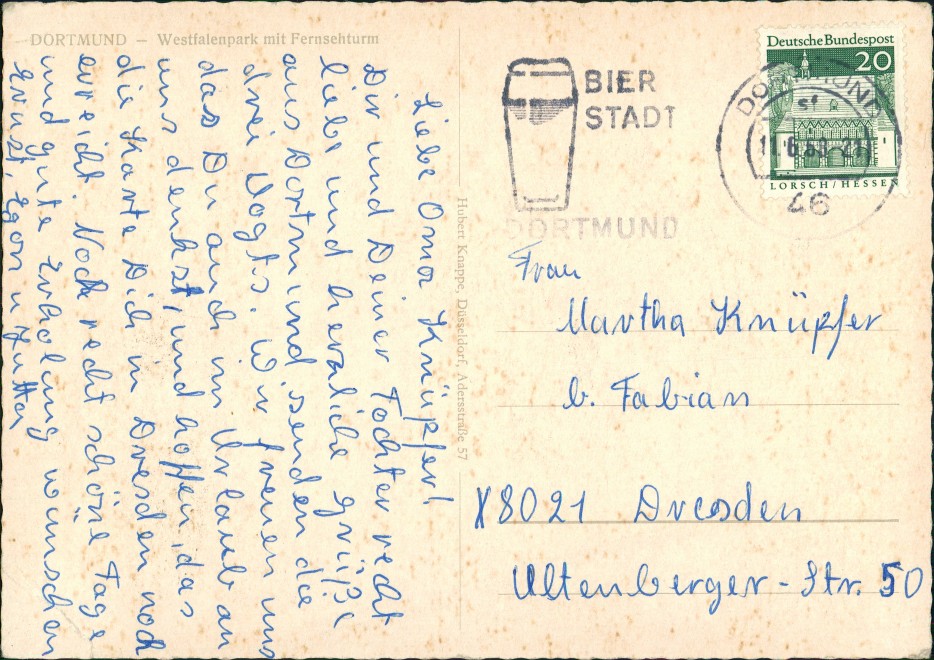 DORTMUND — Westfalenpark mit Fernsehturm
Liebe Oma Knüpfer!
Dir und Deiner Tochter recht
liebe und herzliche Grüße
aus Dortmund senden die
drei Vogts. Wir freuen uns
das Du auch im Urlaub an
uns denkst, und hoffen, das
die Karte Dich in Dresden noch
erreicht. Noch recht schöne Tage
und gute Erholung wünschen
Ernst, Egon u.
Hubert Knappe, Düsseldorf, Adersstraße 57
BIER
STADT
DORTMUND
DORTMUND
46
Deutsche Bundespost
20
LORSCH/HESSEN
Frau
Martha Knüpfer
b. Fabian
X8021 Dresden
Altenberger-Str. 50